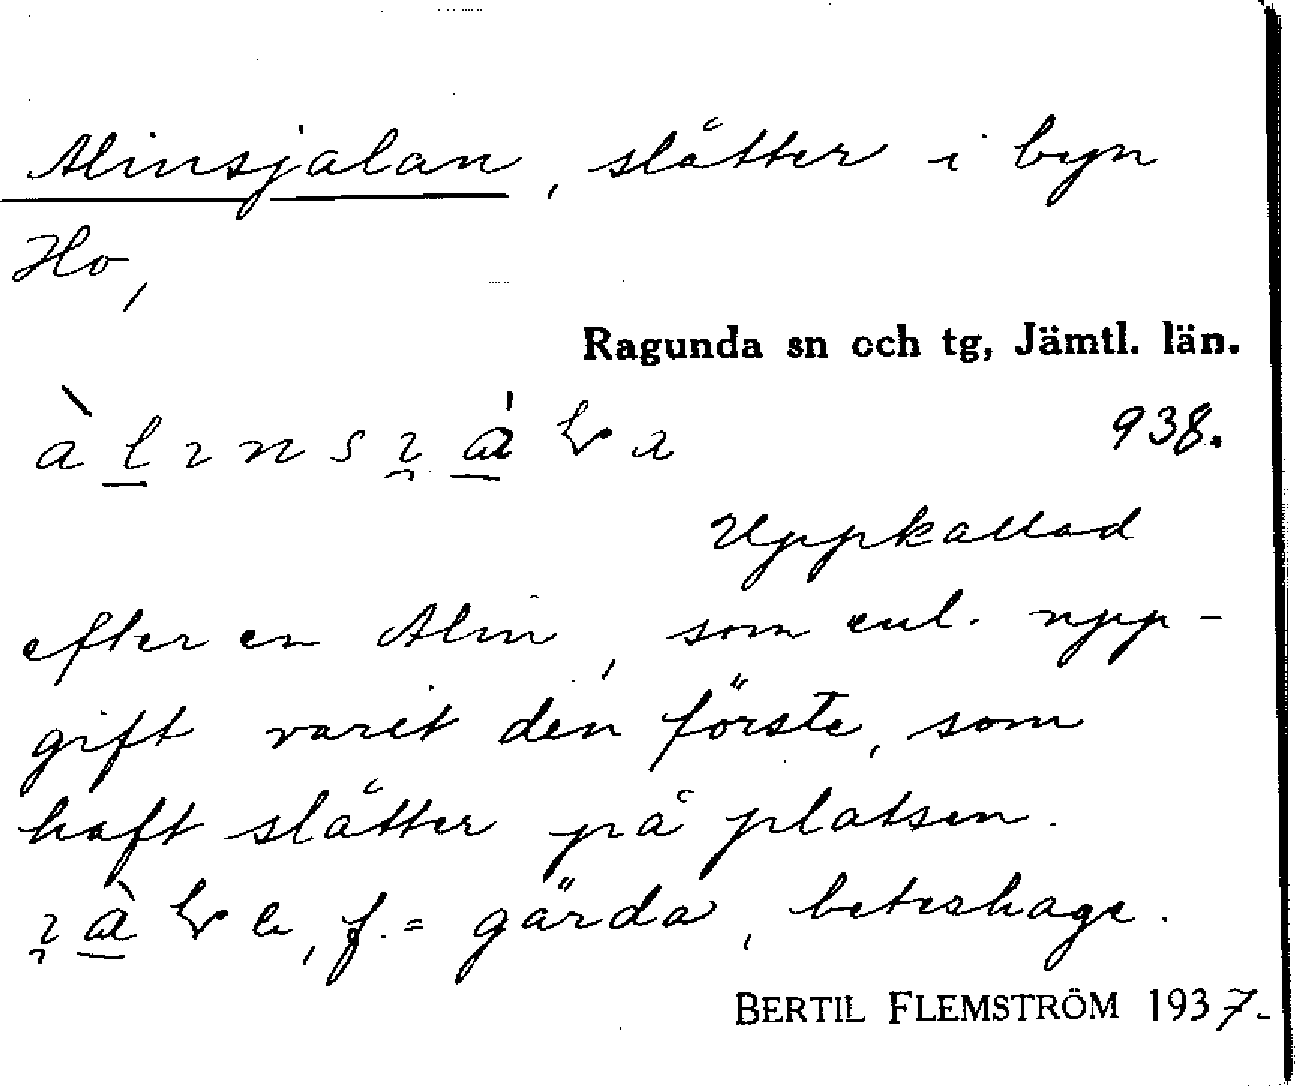 Alinsjalan, slåtter i byn
Ho,
Ragunda sn och tg, Jämtl. län.
938.
Uppkallad
efter en Alin, som enl. upp-
gift varit den förste, som
haft slåtter på platsen.
f. = gärda, beteshage.
BERTIL FLEMSTRÖM 1937.